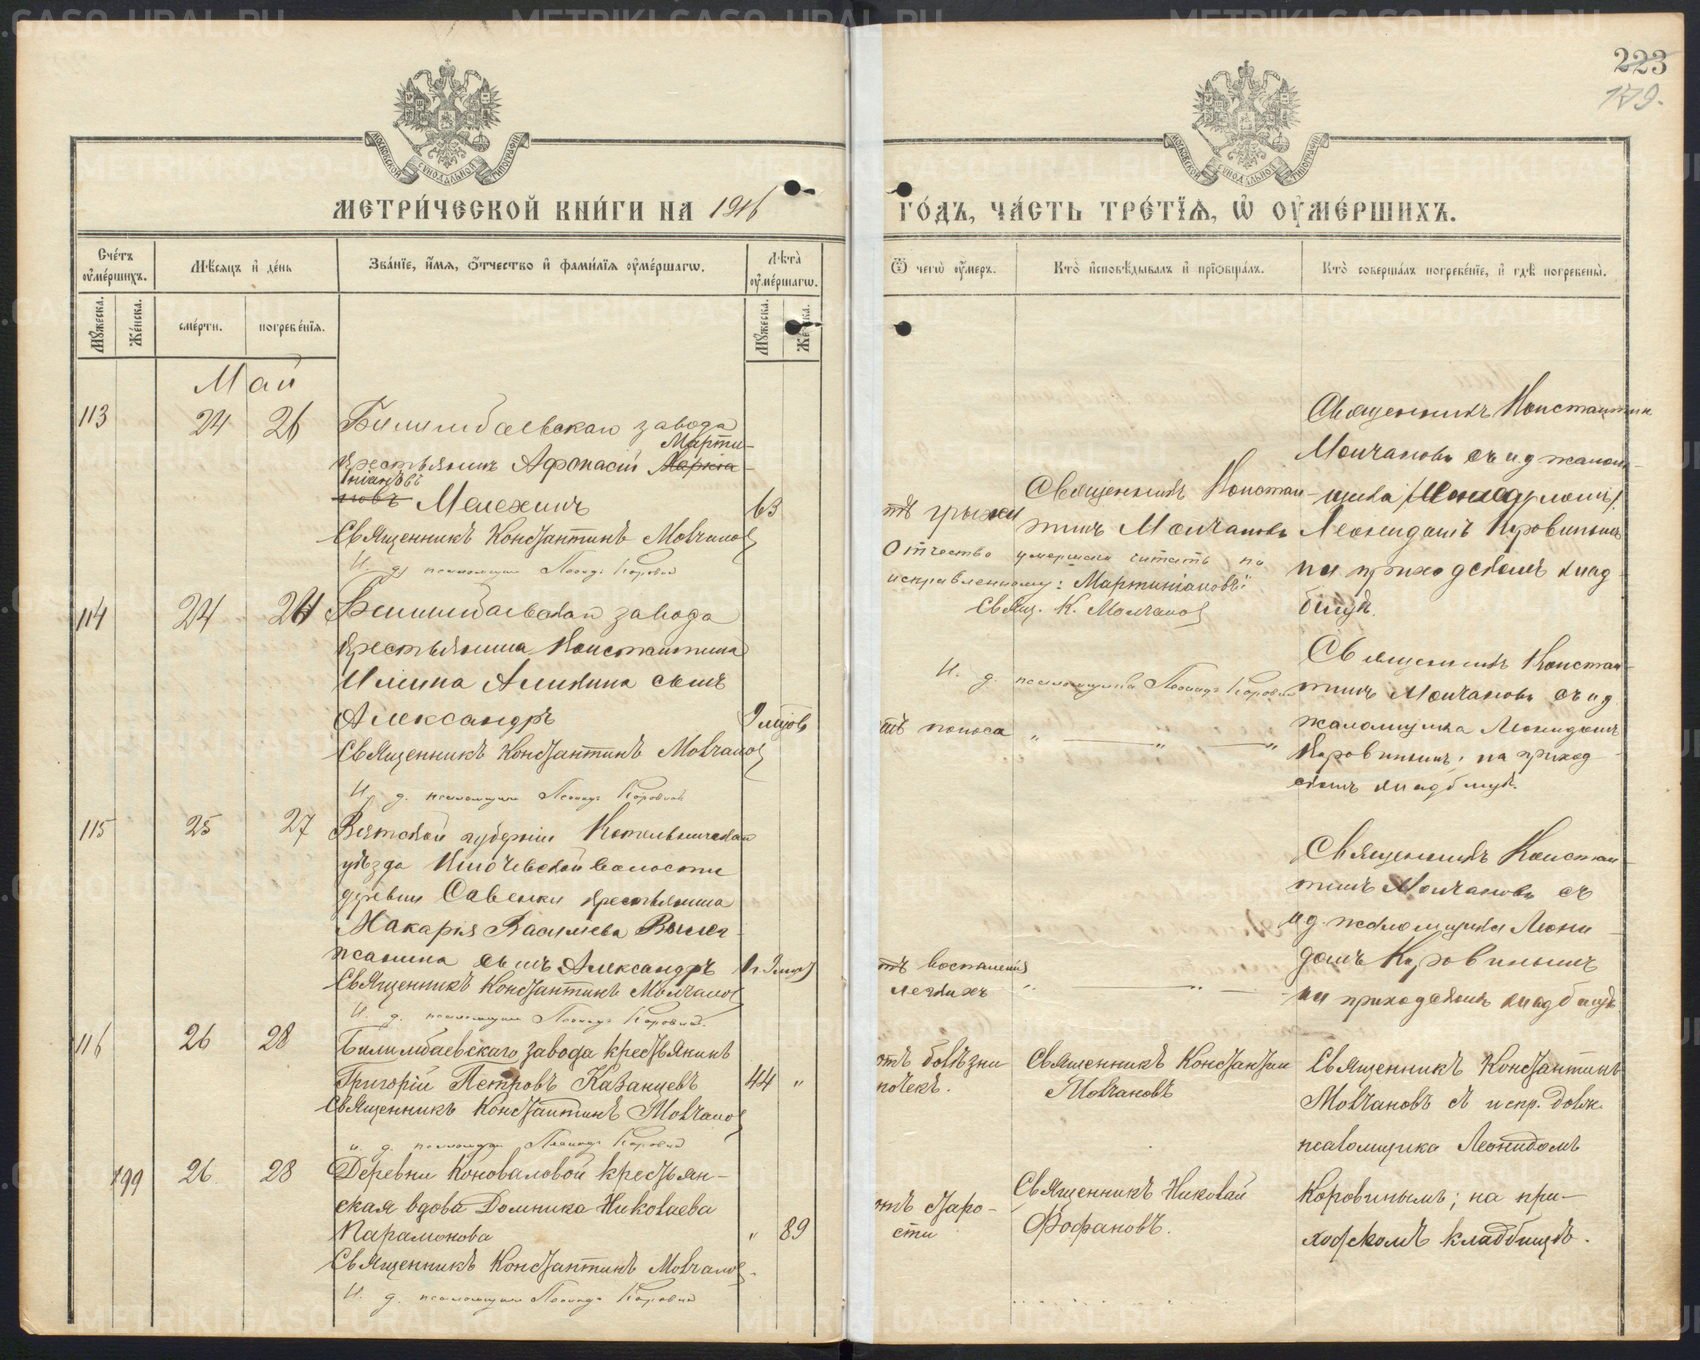 223
179.
МЕТРИ́ЧЕСКОЙ КНИ́ГИ НА 1916
ГО́ДЪ, ЧА́СТЬ ТРЕ́ТЇѦ, Ѡ҆ ОУ҆МЕ́РШИХЪ.
Сче́тъ оу҆ме́ршихъ.
Мужеска.
Же́нска.
Мѣ́сяцъ и҆ де́нь
сме́рти.
погребе́нїя.
Зва́нїе, и҆́мя, ѻ҆́тчество и҆ фами́лїя оу҆ме́ршагѡ.
Лѣ́та оу҆ме́ршагѡ.
Мужеска.
Же́нска.
Ѿ чегѡ̀ оу҆́меръ.
Кто̀ и҆сповѣ́дывалъ и҆ прїѡбща́лъ.
Кто̀ соверша́лъ погребе́нїе, и҆ гдѣ̀ погребены̀.
Май
113
24
26
Билимбаевскаго завода
крестьянинъ Афонасій Марти-
ніановъ
Мелехинъ
63
Священникъ Константинъ Молчановъ
И. д. псаломщика Леонидъ Коровинъ
отъ грыжи
Священникъ Констан-
тинъ Молчановъ
Отчество умершаго читать по
исправленному: "Мартиніановъ".
Свящ. К. Молчановъ
И. д. псаломщика Леонидъ Коровинъ
Священникъ Константинъ
Молчановъ съ и д псалом-
щика
Леонидомъ Коровинымъ
на приходскомъ клад-
бищѣ.
114
24
26
Билимбаевскаго завода
крестьянина Константина
Ильина Аликина сынъ
Александръ
9 мѣсяцовъ
Священникъ Константинъ Молчановъ
И. д. псаломщика Леонидъ Коровинъ
отъ поноса
" — " — "
Священникъ Констан-
тинъ Молчановъ съ и д
псаломщика Леонидомъ
Коровинымъ, на приход-
скомъ кладбищѣ.
115
25
27
Вятской губерніи Котельническаго
уѣзда
волости
деревни Савенки крестьянина
Макарія Васильева
сынъ Александръ
Священникъ Константинъ Молчановъ
И. д. псаломщика Леонидъ Коровинъ.
отъ воспаленія
легкихъ
" — " —
Священникъ Констан-
тинъ Молчановъ съ
и д. псаломщика Леони-
домъ Коровинымъ
на приходскомъ кладбищѣ
116
26
28
Билимбаевскаго завода крестьянинъ
Григорій Петровъ Казанцевъ
44 "
Священникъ Константинъ Молчановъ
и. д. псаломщика Леонидъ Коровинъ
отъ болѣзни
почекъ.
Священникъ Константинъ
Молчановъ
Священникъ Константинъ
Молчановъ съ испр. долж.
псаломщика Леонидомъ
199
26
28
Деревни Коноваловой крестьян-
ская вдова Домника Николаева
Парамонова
" 89
Священникъ Константинъ Молчановъ
И. д. псаломщика Леонидъ Коровинъ
отъ старо-
сти
Священникъ Николай
Фофановъ.
Коровинымъ; на при-
ходскомъ кладбищѣ.